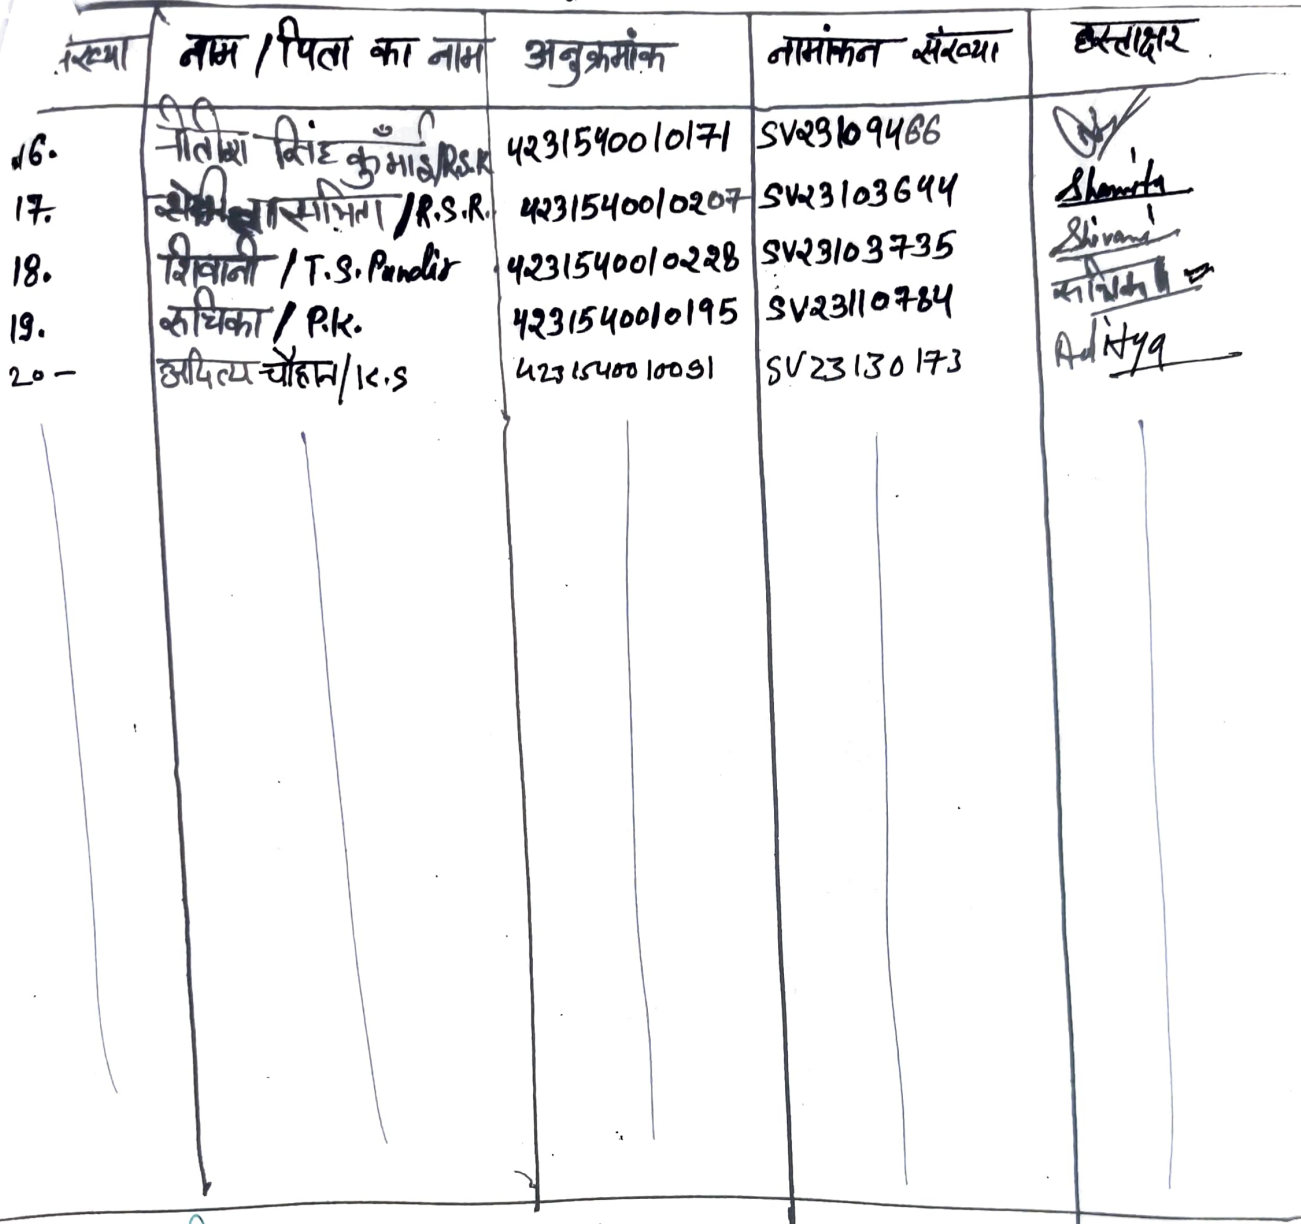 संख्या नाम / पिता का नाम अनुक्रमांक नामांकन संख्या हस्ताक्षर
16. नीतीश सिंह कुँमाई/R.S.K 4231540010171 SV23109466
17. समिता /R.S.R. 4231540010207 SV23103644 Shamita
18. शिवानी / T.S.Pundir 4231540010228 SV23103735 Shivani
19. रुचिका / P.K. 4231540010195 SV23110784
20- आदित्य चौहान/K.S 4231540010091 SV23130173 Aditya